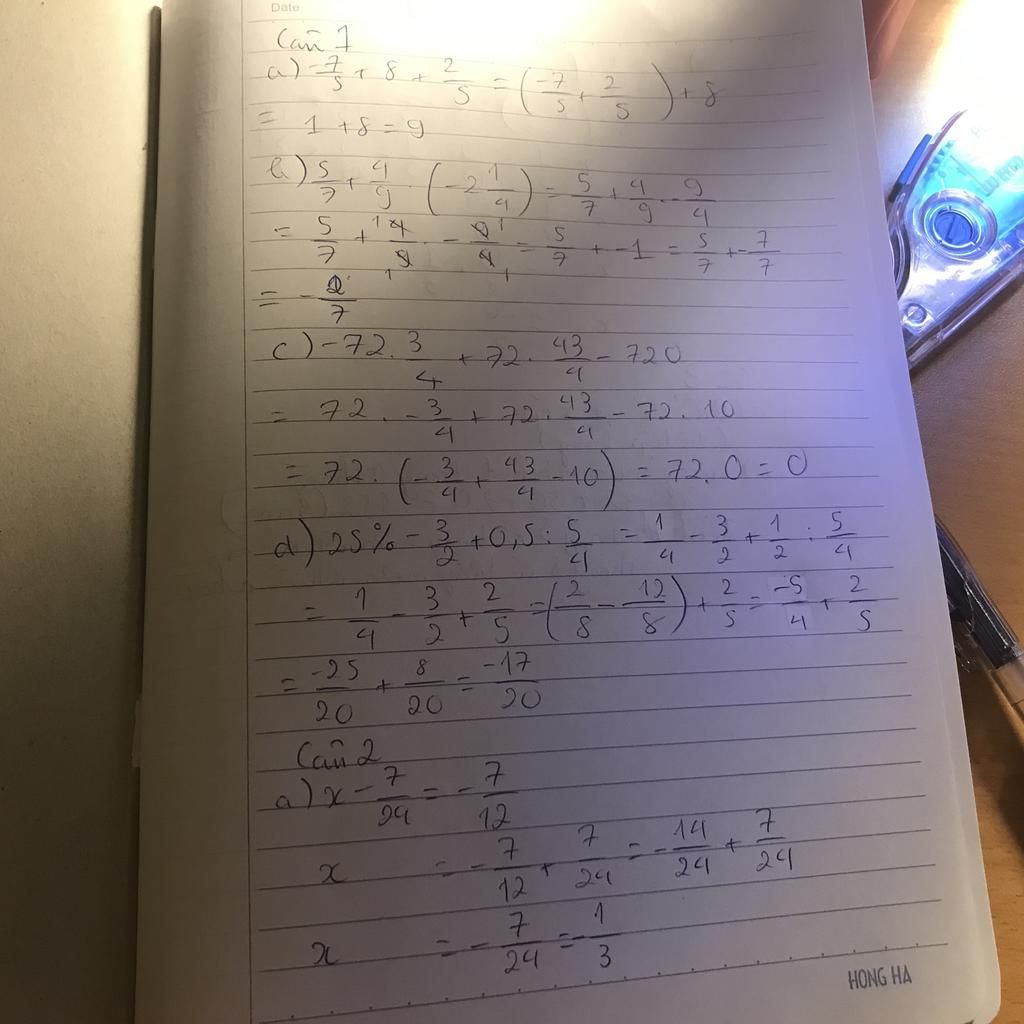 Date
Câu 1
a) -7/5 + 8 + 2/5 = (-7/5 + 2/5) + 8
= 1 + 8 = 9
b) 5/7 + 4/9 . (-2 1/4) = 5/7 + 4/9 . -9/4
= 5/7 + 4/9 . -9/4 = 5/7 + -1 = 5/7 + -7/7
= -2/7
c) -72 . 3/4 + 72 . 43/4 - 720
= 72 . -3/4 + 72 . 43/4 - 72 . 10
= 72 . (-3/4 + 43/4 - 10) = 72 . 0 = 0
d) 25% - 3/2 + 0,5 : 5/4 = 1/4 - 3/2 + 1/2 : 5/4
= 1/4 - 3/2 + 2/5 = (2/8 - 12/8) + 2/5 = -5/4 + 2/5
= -25/20 + 8/20 = -17/20
Câu 2
a) x - 7/24 = -7/12
x = -7/12 + 7/24 = -14/24 + 7/24
x = -7/24 = -1/3
HONG HA